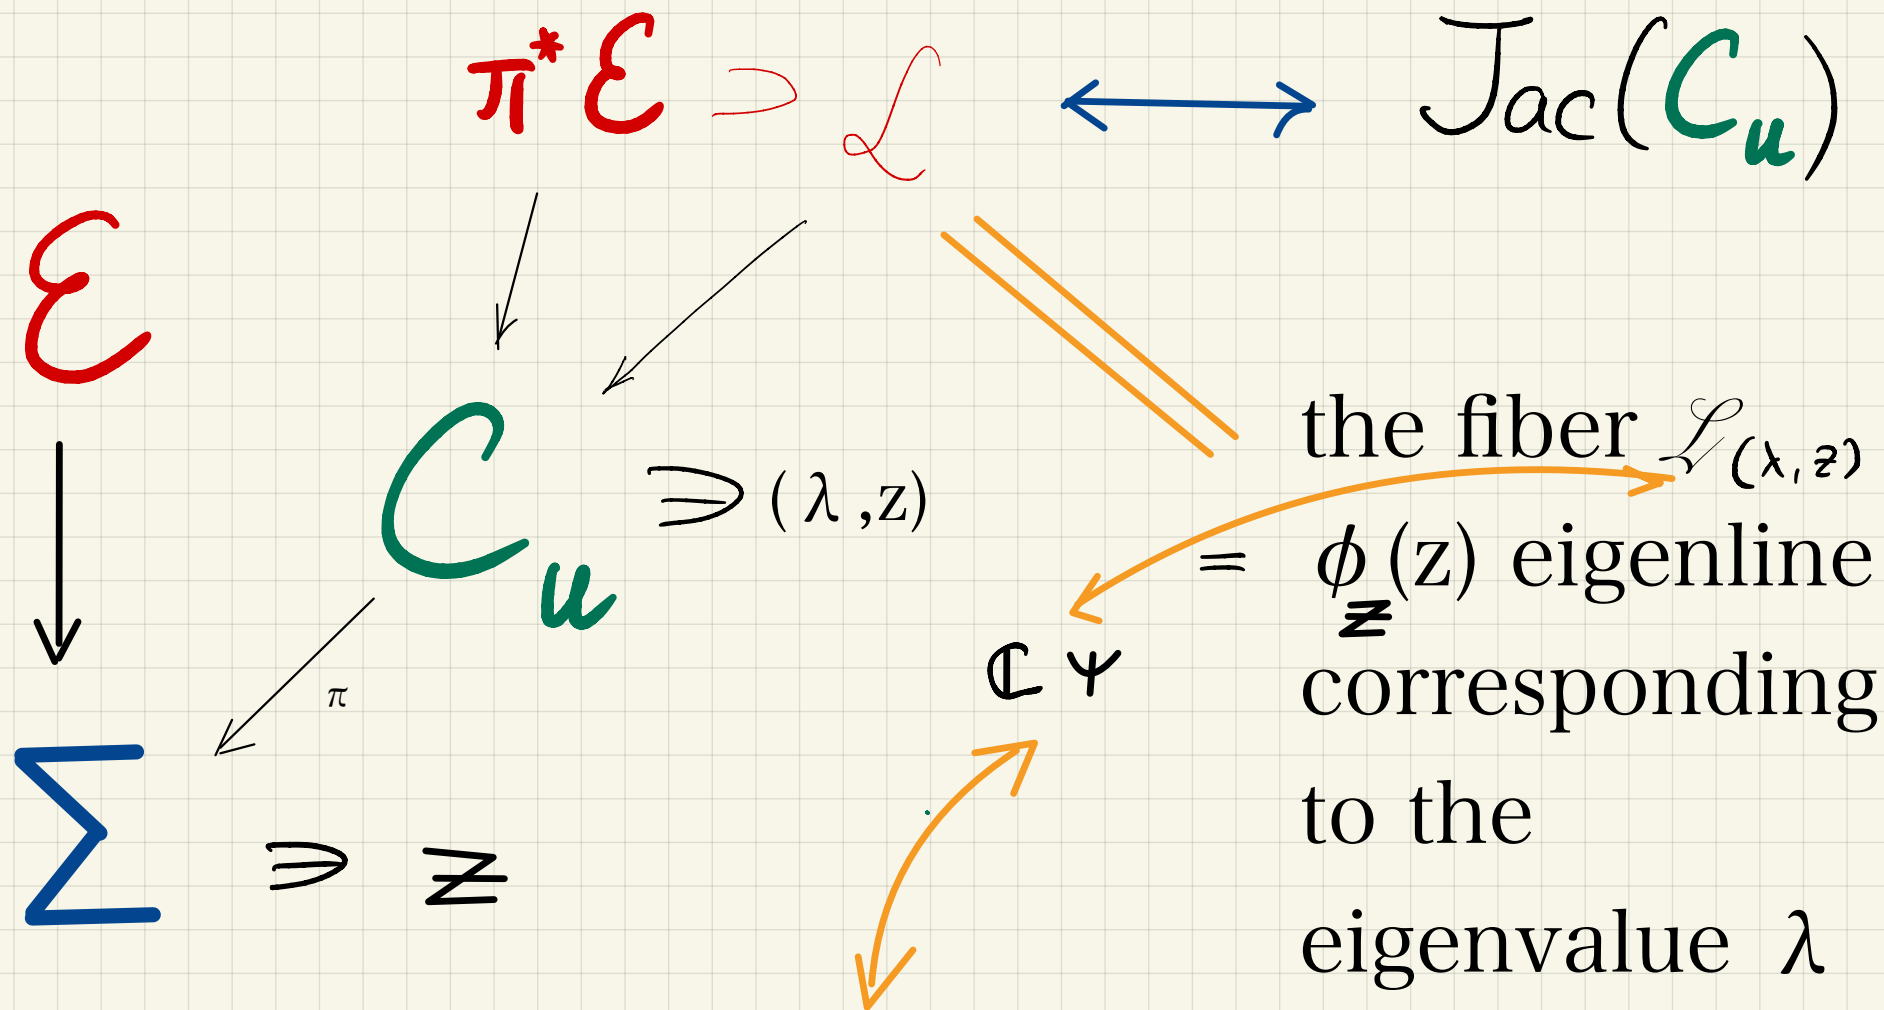 π*ℰ ⊃ ℒ ⟷ Jac(C_u)
ℰ
C_u ∋ (λ,z)
π
Σ ∋ z
ℂψ
the fiber ℒ_(λ,z)
= ϕ_z(z) eigenline
corresponding
to the
eigenvalue λ